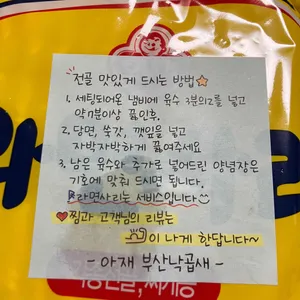 전골 맛있게 드시는 방법
1. 세팅되어온 냄비에 육수 3분의2를 넣고
약7분이상 끓인후.
2. 당면, 쑥갓, 깻잎을 넣고
자박자박하게 끓여주세요
3. 남은 육수와 추가로 넣어드린 양념장은
기호에 맞춰 드시면 됩니다.
라면사리는 서비스입니다
찜과 고객님의 리뷰는
이 나게 한답니다~
- 아재 부산낙곱새 -